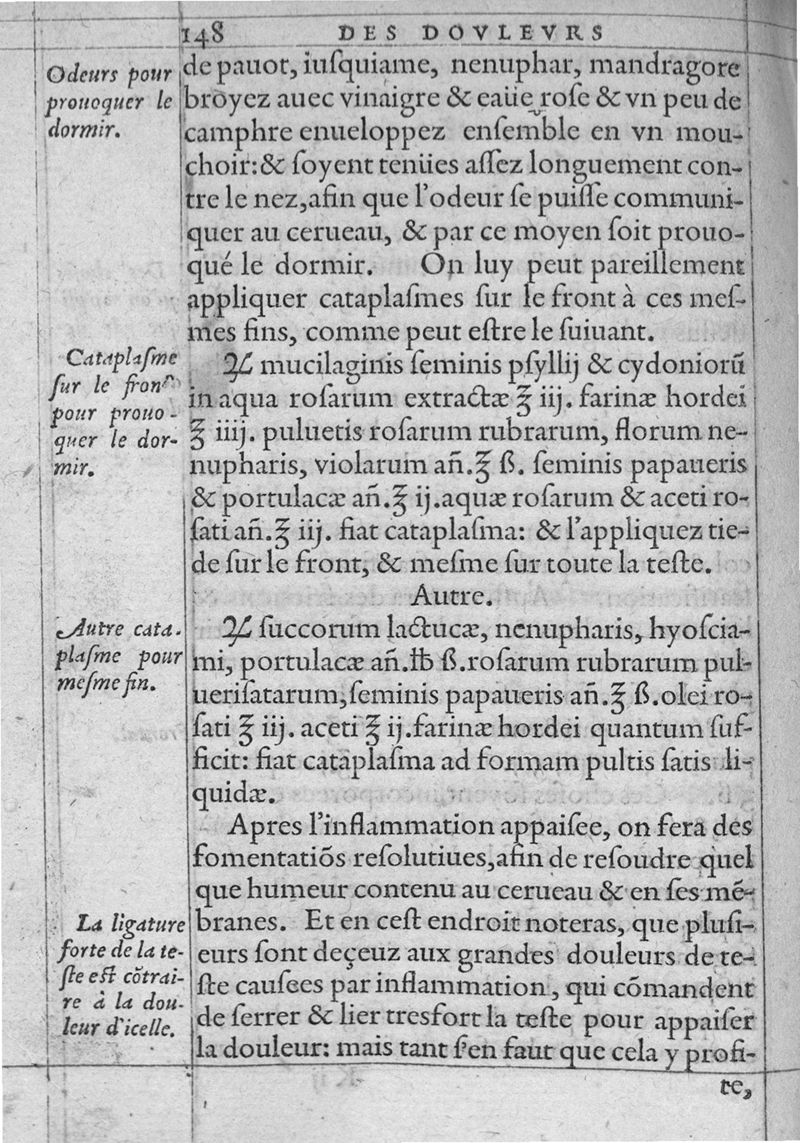 148 DES DOVLEVRS
Odeurs pour
prouoquer le
dormir.
de pauot, iuſquiame, nenuphar, mandragore
broyez auec vinaigre & eaüe roſe & vn peu de
camphre enueloppez enſemble en vn mou-
choir:& ſoyent tenües aſſez longuement con-
tre le nez,afin que l'odeur ſe puiſſe communi-
quer au cerueau, & par ce moyen ſoit prouo-
qué le dormir. On luy peut pareillement
appliquer cataplaſmes ſur le front à ces meſ-
mes fins, comme peut eſtre le ſuiuant.
Cataplaſme
ſur le front
pour prouo-
quer le dor-
mir.
℞ mucilaginis ſeminis pſyllij & cydoniorũ
in aqua roſarum extractæ ℥ iij. farinæ hordei
℥ iiij. pulueris roſarum rubrarum, florum ne-
nupharis, violarum añ.℥ ß. ſeminis papaueris
& portulacæ añ.℥ ij.aquæ roſarum & aceti ro-
ſati añ.℥ iij. fiat cataplaſma: & l'appliquez tie-
de ſur le front, & meſme ſur toute la teſte.
Autre.
Autre cata-
plaſme pour
meſme fin.
℞ ſuccorum lactucæ, nenupharis, hyoſcia-
mi, portulacæ añ.℔ ß.roſarum rubrarum pul-
ueriſatarum,ſeminis papaueris añ.℥ ß.olei ro-
ſati ℥ iij. aceti ℥ ij.farinæ hordei quantum ſuf-
ficit: fiat cataplaſma ad formam pultis ſatis li-
quidæ.
Apres l'inflammation appaiſee, on fera des
fomentatiõs reſolutiues,afin de reſoudre quel
que humeur contenu au cerueau & en ſes mẽ-
branes. Et en ceſt endroit noteras, que pluſi-
eurs ſont deçeuz aux grandes douleurs de te-
ſte cauſees par inflammation, qui cõmandent
de ſerrer & lier tresfort la teſte pour appaiſer
la douleur: mais tant ſ'en faut que cela y profi-
La ligature
forte de la te-
ſte eſt cõtrai-
re à la dou-
leur d'icelle.
te,